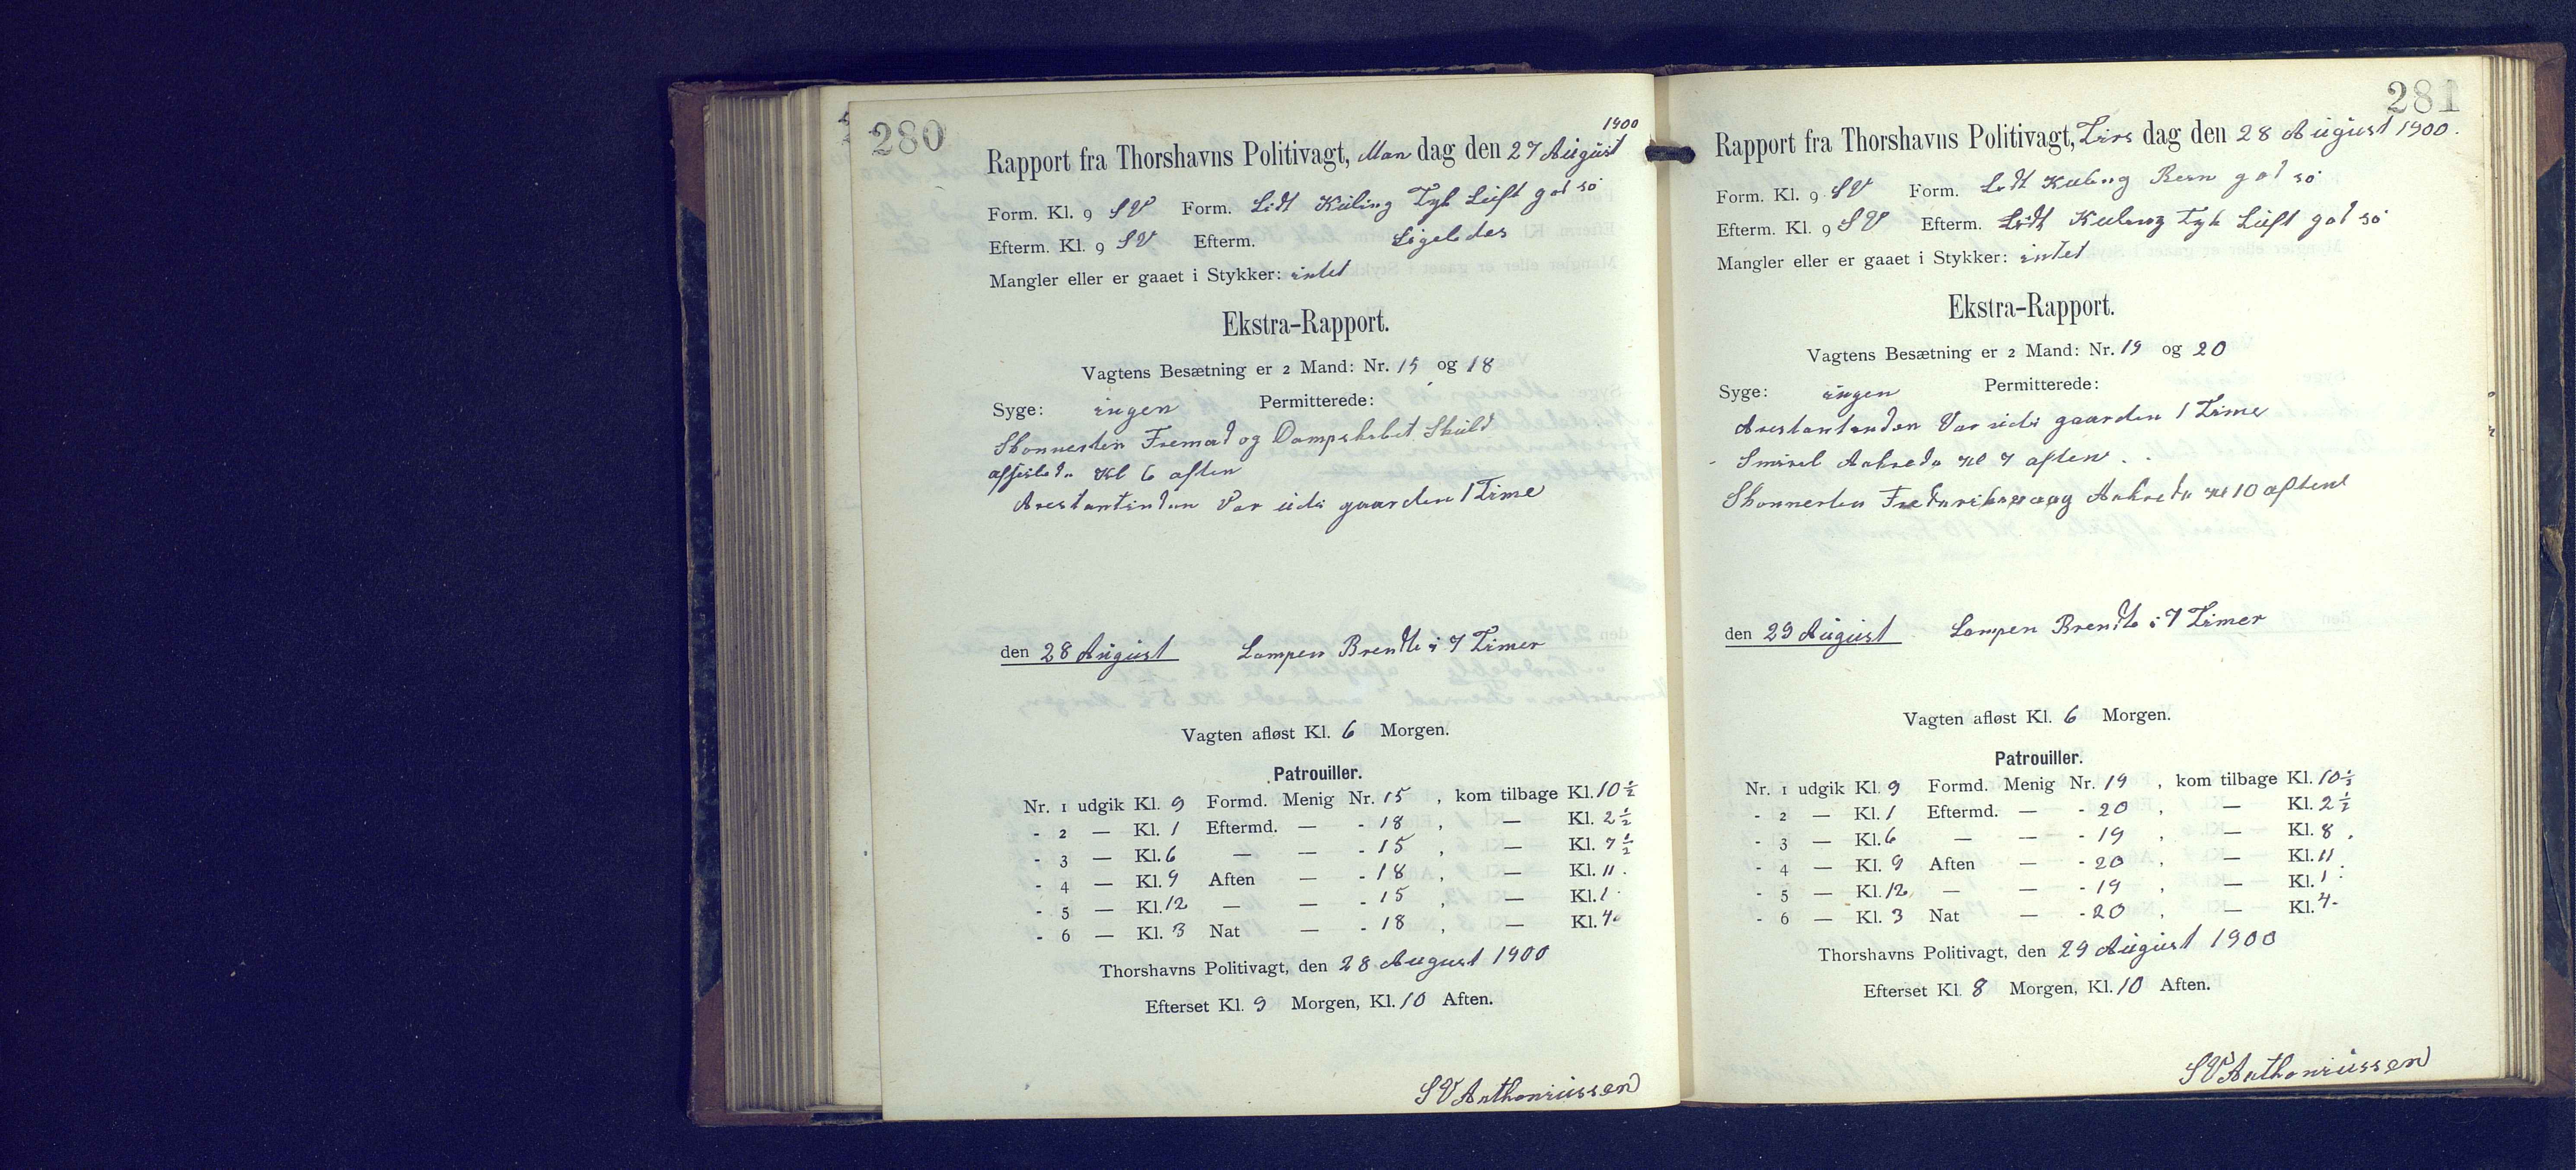 280
1900
Rapport fra Thorshavns Politivagt, Man dag den 27 August
Form. Kl. 9 SV Form. Lidt Kuling Tyk Luft god sø
Efterm. Kl. 9 SV Efterm. Ligeledes
Mangler eller er gaaet i Stykker: intet
Ekstra-Rapport.
Vagtens Besætning er 2 Mand: Nr. 15 og 18
Syge: ingen Permitterede:
Skonnerten Fremad og Dampskibet Skuld
afsejlede Kl 6 aften
Arestantinden Var ude i gaarden 1 Time
den 28 August Lampen Brendte i 7 Timer
Vagten afløst Kl. 6 Morgen.
Patrouiller.
Nr. 1 udgik Kl. 9 Formd. Menig Nr. 15 , kom tilbage Kl. 10 ½
- 2 — Kl. 1 Eftermd. — - 18 , — Kl. 2 ½
- 3 — Kl. 6 — — - 15 , — Kl. 7 ½
- 4 — Kl. 9 Aften — - 18 , — Kl. 11.
- 5 — Kl. 12 — — - 15 , — Kl. 1
- 6 — Kl. 3 Nat — - 18 , — Kl. 4
Thorshavns Politivagt, den 28 August 1900
Efterset Kl. 9 Morgen, Kl. 10 Aften.
SV Anthoniussen
281
Rapport fra Thorshavns Politivagt, Tirs dag den 28 August 1900.
Form. Kl. 9 SV Form. Lidt Kuling Resn god sø
Efterm. Kl. 9 SV Efterm. Lidt Kuling Tyk Luft god sø
Mangler eller er gaaet i Stykker: intet
Ekstra-Rapport.
Vagtens Besætning er 2 Mand: Nr. 19 og 20
Syge: ingen Permitterede:
Arestantenden Var ude i gaarden 1 Time
Smiril Ankrede Kl 7 aften.
Skonnerten Frederiksvaag Ankrede Kl 10 aften
den 29 August Lampen Brendte i 7 Timer
Vagten afløst Kl. 6 Morgen.
Patrouiller.
Nr. 1 udgik Kl. 9 Formd. Menig Nr. 19 , kom tilbage Kl. 10 ½
- 2 — Kl. 1 Eftermd. — - 20 , — Kl. 2 ½
- 3 — Kl. 6 — — - 19 , — Kl. 8.
- 4 — Kl. 9 Aften — - 20 , — Kl. 11
- 5 — Kl. 12 — — - 19 , — Kl. 1
- 6 — Kl. 3 Nat — - 20 , — Kl. 4
Thorshavns Politivagt, den 29 August 1900
Efterset Kl. 8 Morgen, Kl. 10 Aften.
SV Anthoniussen